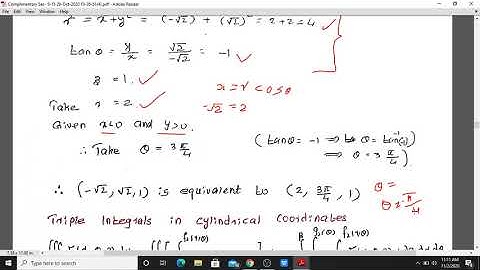 Complementary Sec - 5-13-29-Oct-2020 13-30-21(4).pdf - Adobe Reader
File Edit View Window Help
r² = x² + y² = (-√2)² + (√2)² = 2+2 = 4
tan θ = y/x = √2/-√2 = -1
z = 1.
x = r cos θ
Take r = 2.
-√2 = 2
Given x<0 and y>0.
∴ Take θ = 3π/4
(tan θ = -1 ⇒ θ = tan⁻¹(-1)
⇒ θ = 3π/4)
θ =
∴ (-√2, √2, 1) is equivalent to (2, 3π/4, 1)
Triple Integrals in Cylindrical Coordinates
Type here to search
11:11 AM
11/2/2020